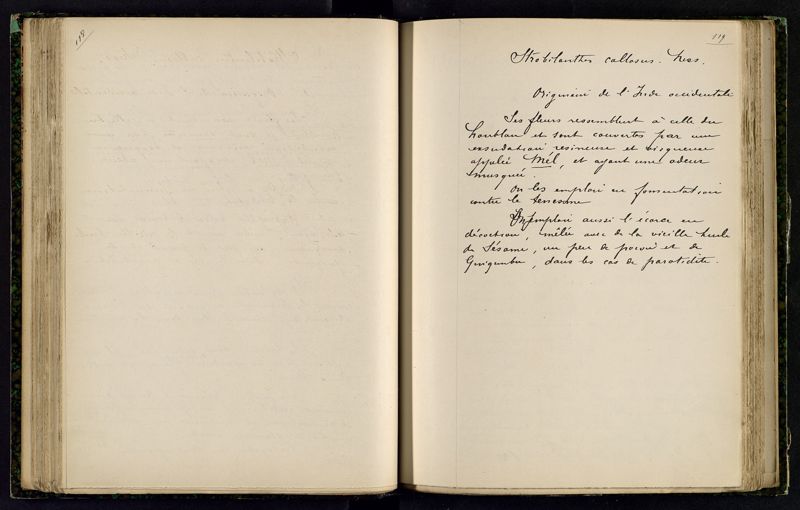 118
119
Strobilanthes callosus. Nees.
Originaire de l'Inde occidentale
Ses fleurs ressemblent à celle du
houblon et sont couvertes par une
exsudation resineuse et visqueuse
appelée Mél, et ayant une odeur
musquée.
On les emploi en fomentation
contre le tenesme
On emploi aussi l'écorce en
décoction, mêlée avec de la vieille huile
de Sésame, un peu de poivre et de
Gingembre, dans les cas de parotidite.